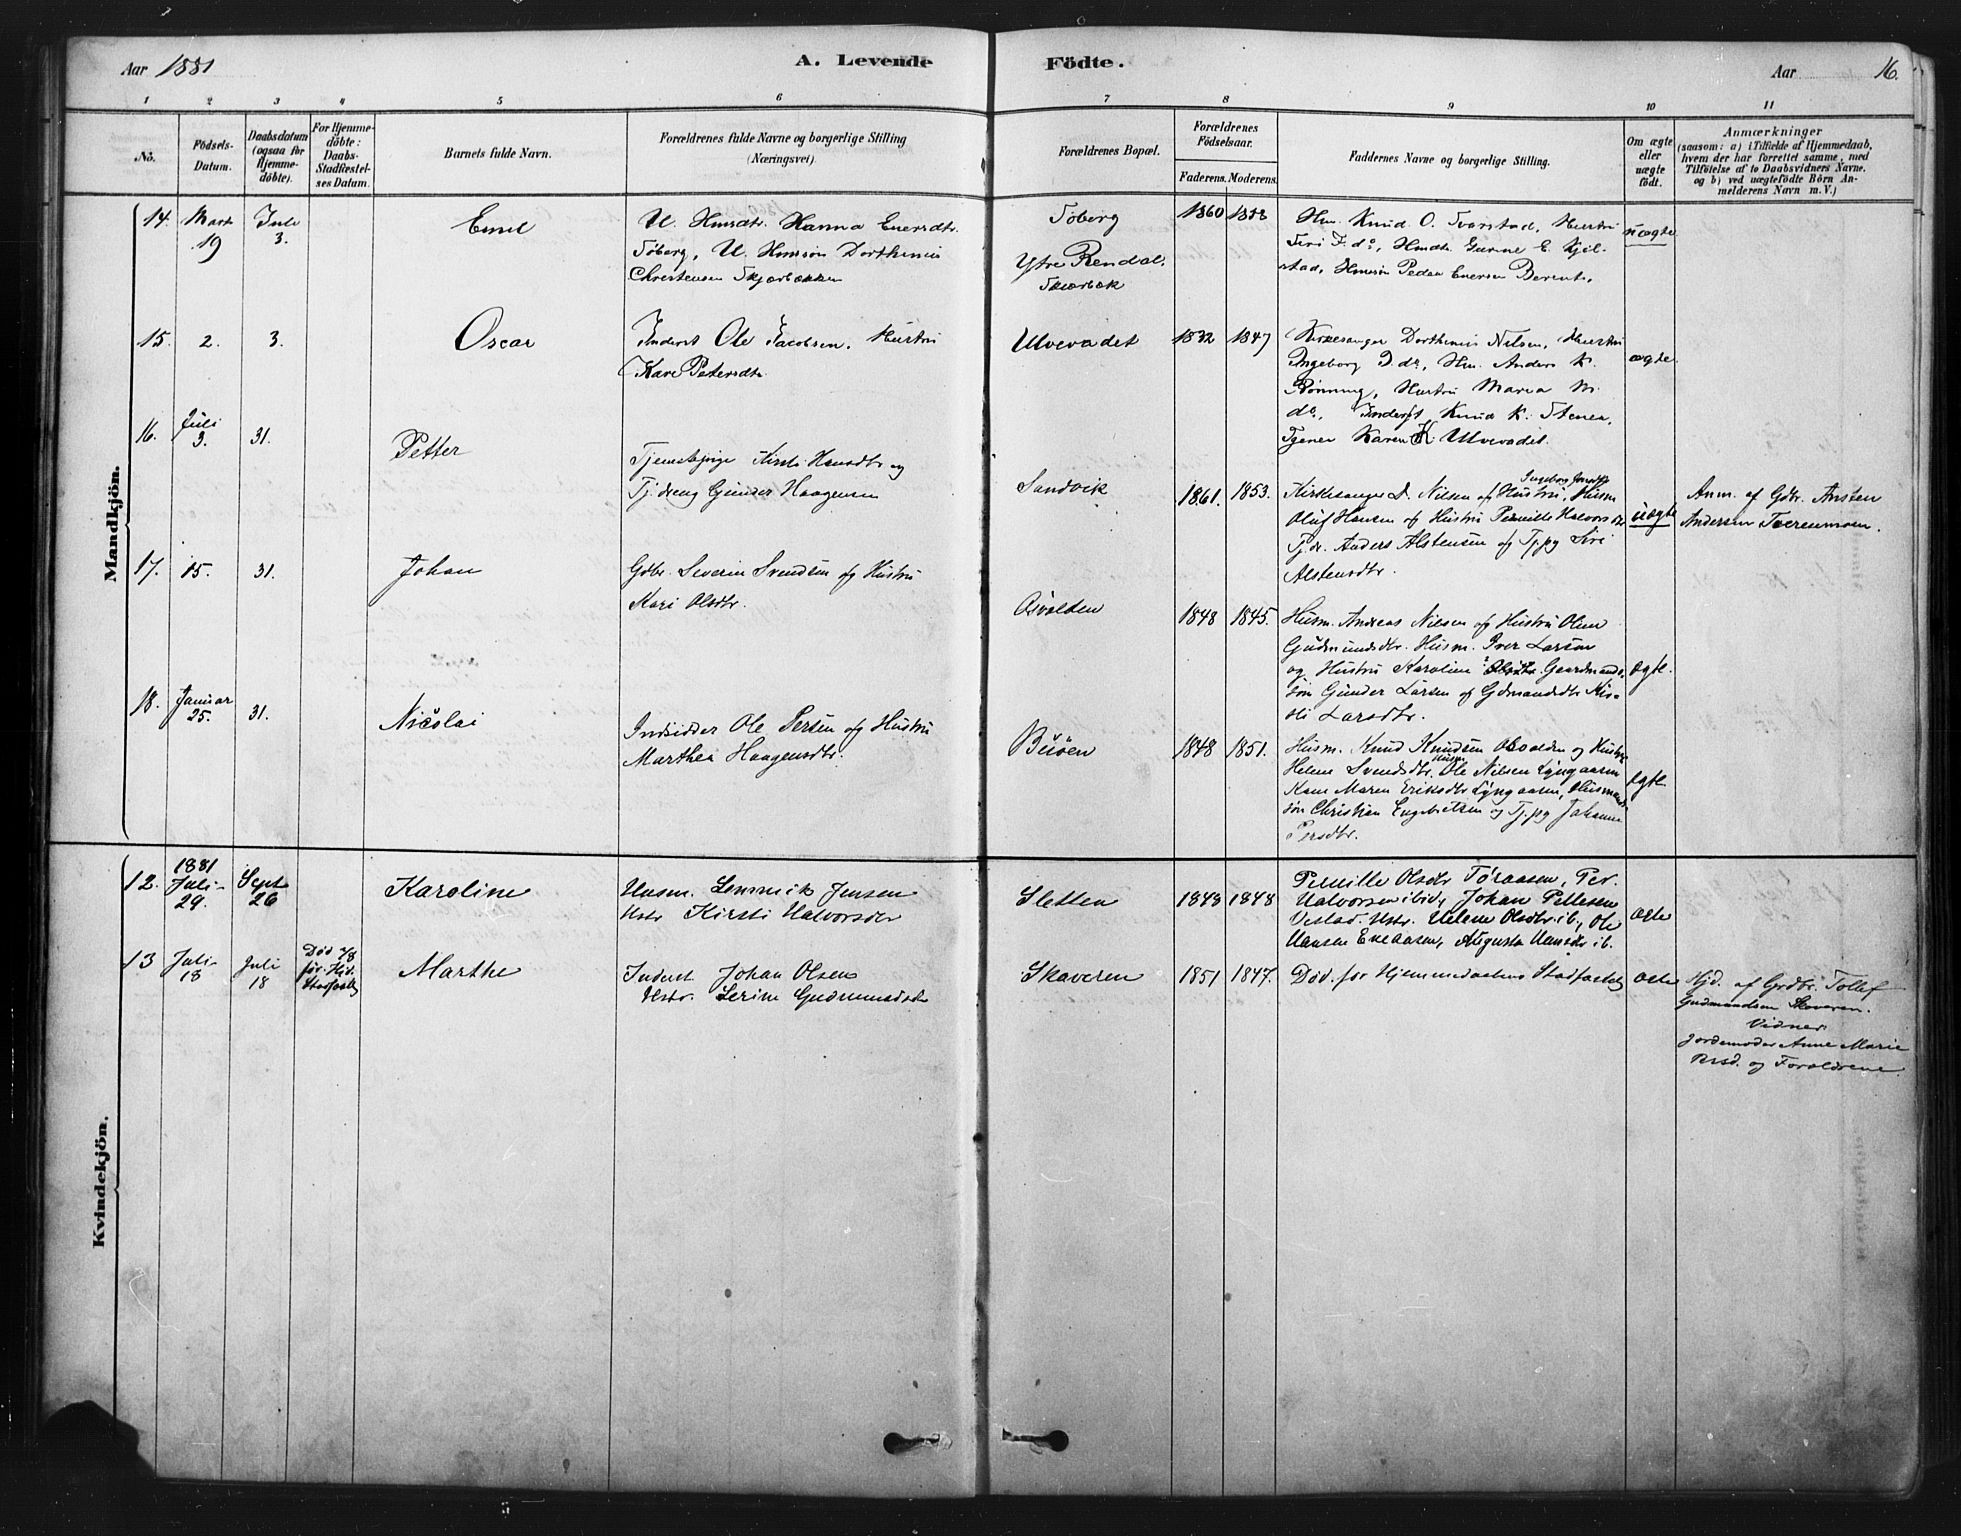 Aar 1881
A. Levende Födte.
Aar 16.
1 2 3 4 5 6 7 8 9 10 11
No.
Födsels-Datum.
Daabsdatum (ogsaa for Hjemme-döbte).
For Hjemme-döbte: Daabs-Stadfæstel-ses Datum.
Barnets fulde Navn.
Forældrenes fulde Navne og borgerlige Stilling
(Næringsvei).
Forældrenes Bopæl.
Forældrenes Födselsaar.
Faderens. Moderens.
Faddernes Navne og borgerlige Stilling.
Om ægte eller uægte født.
Anmærkninger
(saasom: a) i Tilfælde af Hjemmedaab,
hvem der har forrettet samme, med
Tilföielse af to Daabsvidners Navne.
og b) ved uægtefödte Börn An-
melderens Navn m. V.)
Mandkjön.
14. Mart 19 Juli 3. Emil
U. Hmdt. Hanna Enersdt.
Söberg, U. Hmsön Dorthinius
Christensen Skjærbækken
Söberg
Ytre Rendal.
Skiærbæk
1860 1858
Hm. Knud O. Tvarstad, Hustru
Siri J. do, Hmdt. Gunne E. Kjil-
stad, Hmsön Peder Enersen Berent.
uægte
15. 2. 3. Oscar
Inderst Ole Jacobsen. Hustru
Kari Petersdt.
Ulvevadet 1832 1847
Kirkesanger Dorthinius Nilsen, Hustru
Ingeborg J. do, Hm. Anders K.
Rönning, Hustru Maria M.
do, Inderst Knud K. Stenen,
Tjener Karen K. Ulvevadet.
ægte
16. Juli 3. 31. Petter
Tjenestepige Kirsti Hansdtr og
Tj.dreng Gunder Haagensen
Sandvik 1861. 1853.
Kirkesanger D. Nilsen og Hustru Ingeborg Jonsdtr, Husm
Oluf Hansen og Hustru Pernille Halvorsdtr
Tj.dr. Anders Alstensen og Tj.pg Siri
Alstensdtr.
uægte
Anm. af Gdbr. Austen
Andersen Tverenmoen.
17. 15. 31. Johan
Gdbr. Severin Svendsen og Hustru
Kari Olsdtr.
Osvolden 1848 1845.
Husm. Andreas Nilsen og Hustru Oline
Gudmundsdtr. Husm. Iver Larsen
og Hustru Karoline Olsdtr. Gaardmands-
sön Gunder Larsen og Gdmandsdtr Kir-
sti Larsdtr.
ægte.
18. Januar 25. 31. Nicolai
Indsidder Ole Persen og Hustru
Marthea Haagensdtr.
Buöen 1848 1851.
Husm. Knud Knudsen Osvolden og Hustru
Helene Svendsdtr. Husm. Ole Nilsen Lyngaasen
Kone Maren Eriksdtr Lyngaasen, Husmands
sön Christian Engebretsen og Tj.pg Johanne
Persdtr.
ægte
Kvindekjön.
12. 1881 Juli 29. Sept 26 Karoline
Husm. Lemmik Jensen
Hstr Kirsti Halvorsdtr
Sletten 1849 1848
Pernille Olsdtr Töraasen, Per
Halvorsen ibid., Johan Pettesen
Vestad. Hstr. Helene Olsdtr. ib., Ole
Hansen Enebaasen, Augusta Hansdtr ib.
ægte
13 Juli 18 Juli 18 Död 7/8 för Hjd. Stadfæstet Marthe
Inderst Johan Olsen
Hstr. Serine Gudmundsdtr
Skaveren 1851 1847.
Död för Hjemmedaabens Stadfæstelse
ægte
Hjd. af Grdbr. Tollef
Gudmundsen Skaveren.
Vidner.
Jordemoder Anne Marie
Persd. og Forældrene.